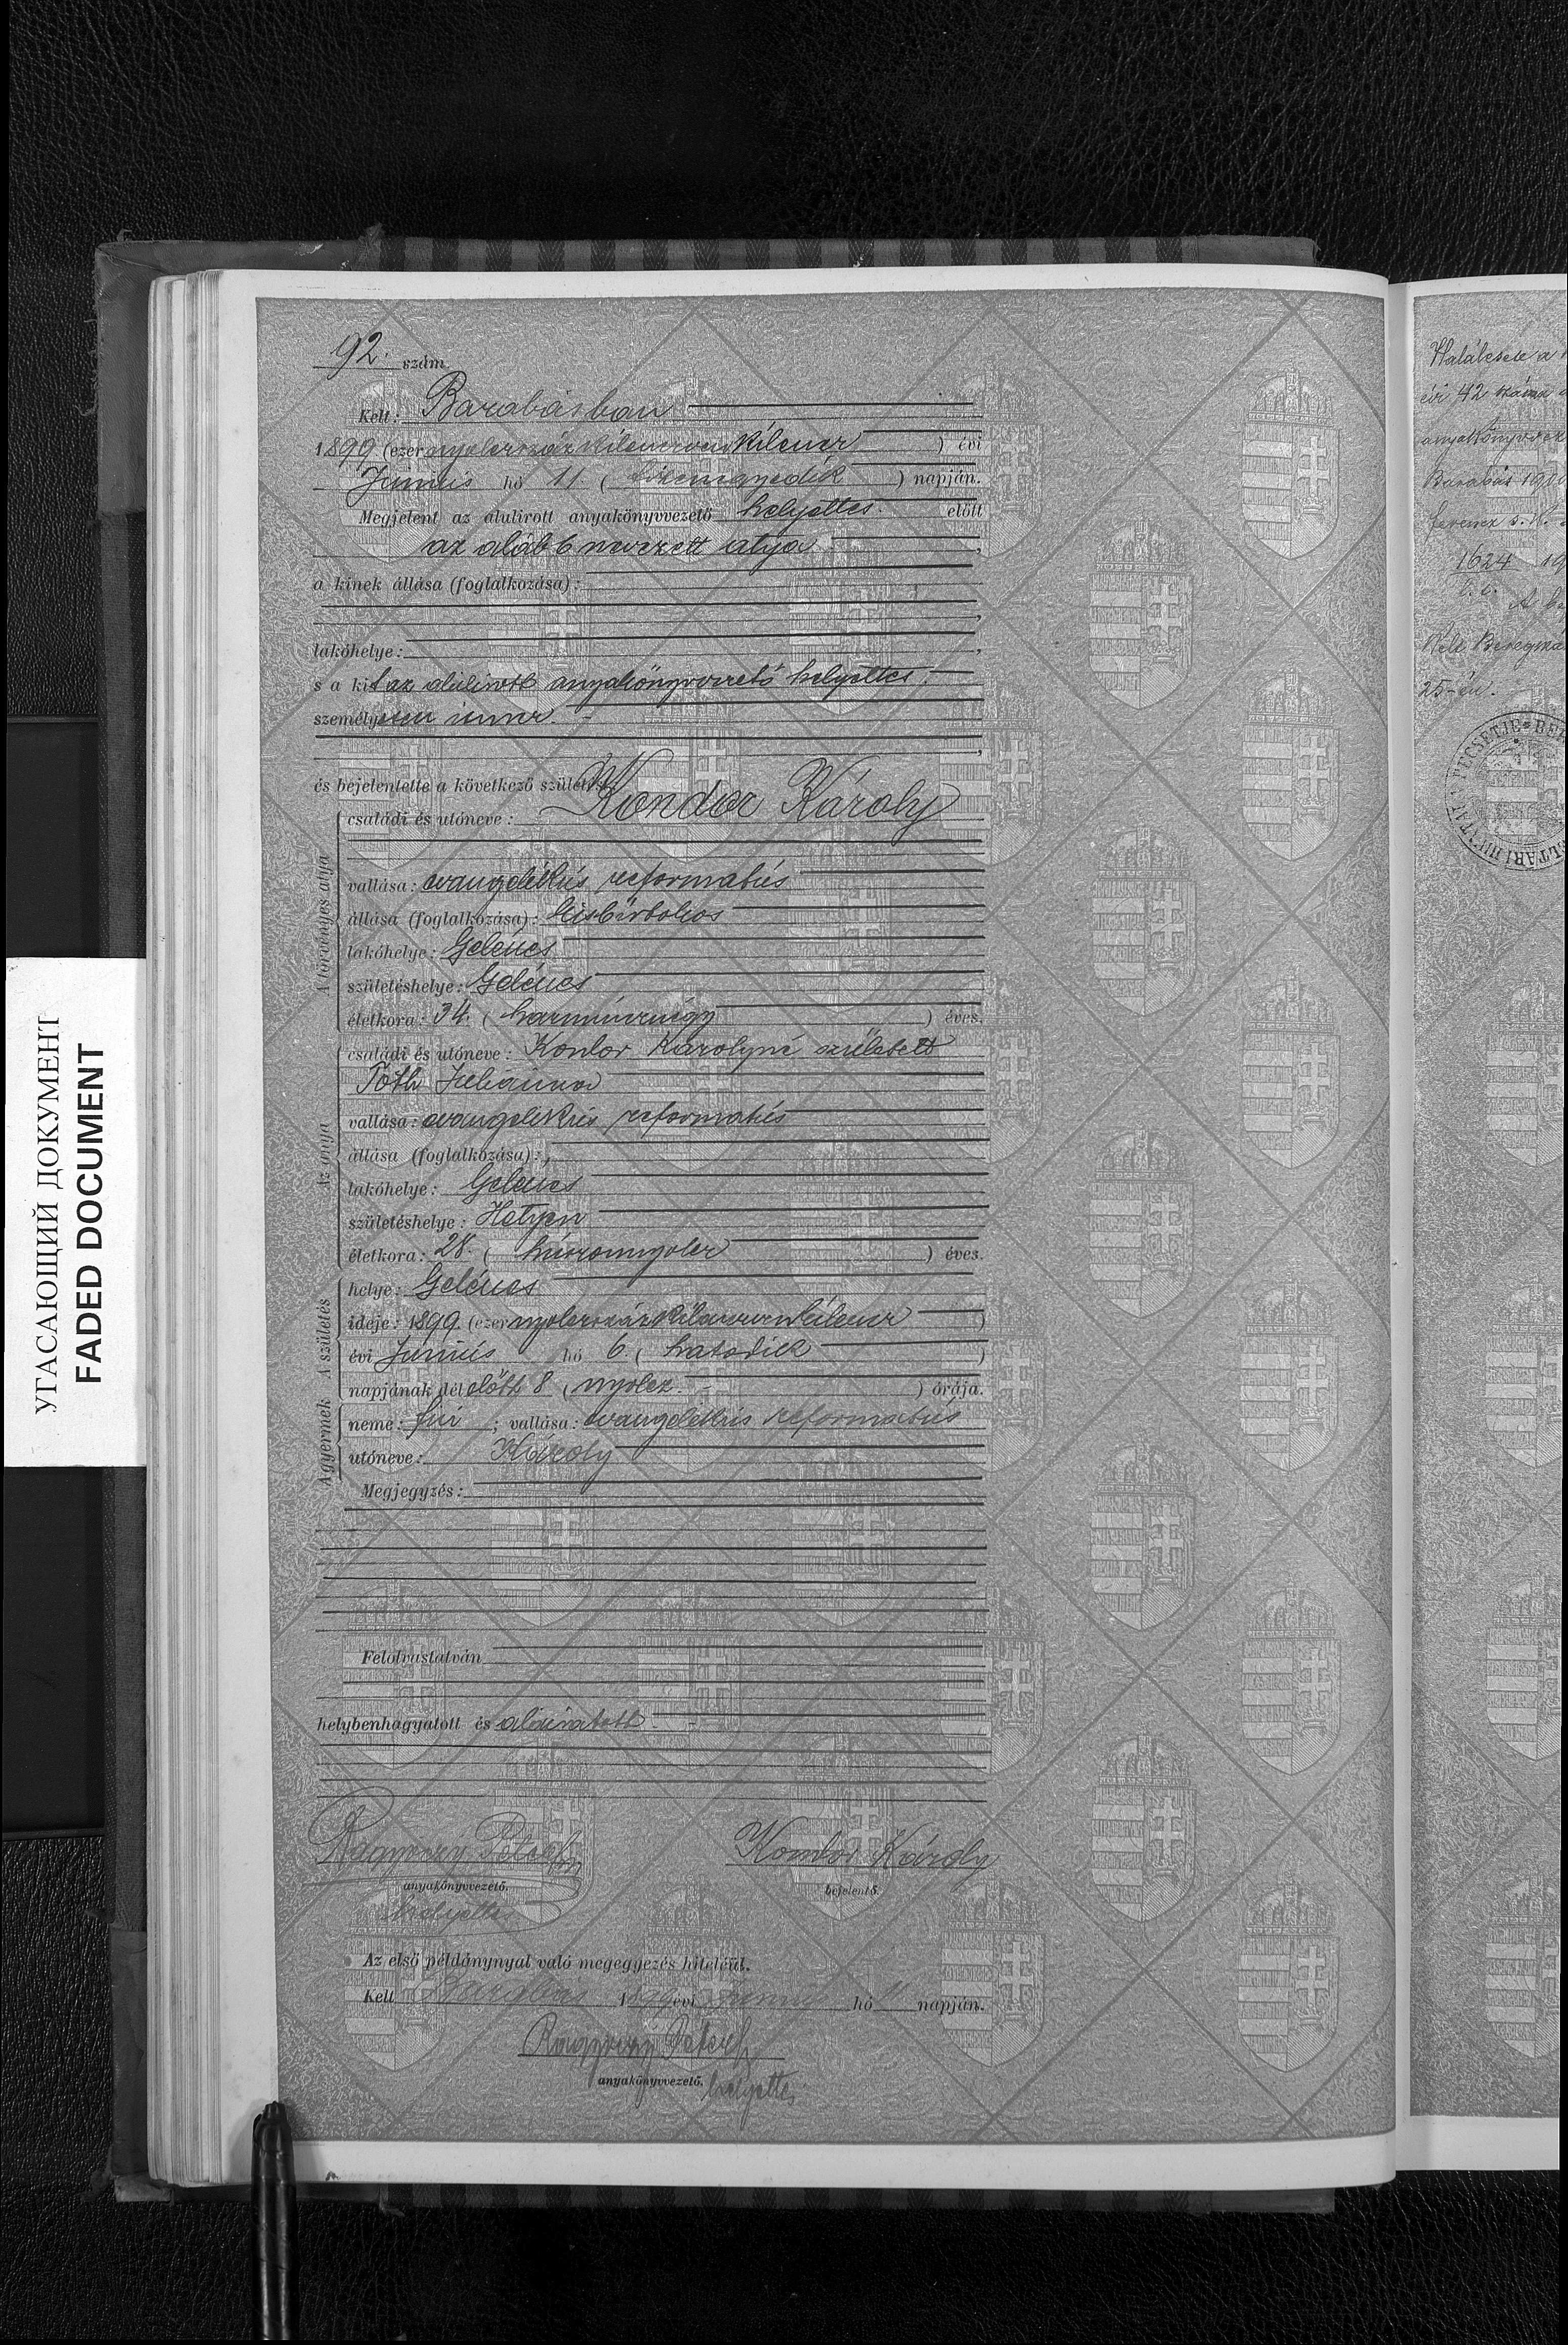 92. szám.
Kelt: Barabásban
1899 (ezer nyolczszáz kilenczven kilencz) évi
Junius hó 11. (tizenegyedik) napján.
Megjelent az alulirott anyakönyvvezető helyettes előtt
az alább nevezett atya,
a kinek állása (foglalkozása):
lakóhelye:
s a kit az alulirott anyakönyvvezető helyettes
személyesen ismer.
és bejelentette a következő születést:
A törvényes atya
családi és utóneve: Kondor Károly
vallása: evangélikus reformatus
állása (foglalkozása): kisbirtokos
lakóhelye: Gelénes
születéshelye: Gelénes
életkora: 34. (harmincznégy) éves.
Az anya
családi és utóneve: Kondor Károlyné született
Tóth Juliánna
vallása: evangelikus reformatus
állása (foglalkozása):
lakóhelye: Gelénes
születéshelye: Hetyen
életkora: 28. (huszonnyolcz) éves.
A születés
helye: Gelénes
ideje: 1899. (ezer nyolczszáz kilenczven kilencz)
évi Junius hó 6. (hatodik)
napjának délelőtt 8 (nyolcz) órája.
A gyermek
neme: fiú; vallása: evangélikus reformatus
utóneve: Károly
Megjegyzés:
Felolvastatván
helybenhagyatott és aláiratott
Péter
Kondor Károly
anyakönyvvezető.
bejelentő.
helyettes
Az első példánynyal való megegyezés hiteléül.
Kelt Barabás 1899 évi junius hó 11 napján.
Péter
anyakönyvvezető. helyettes
УГАСАЮЩИЙ ДОКУМЕНТ
FADED DOCUMENT
Halálesete a
évi 42 száma
anyakönyv
Barabás
ferencz s. k.
1624
Kelt Beregsza
25-én.